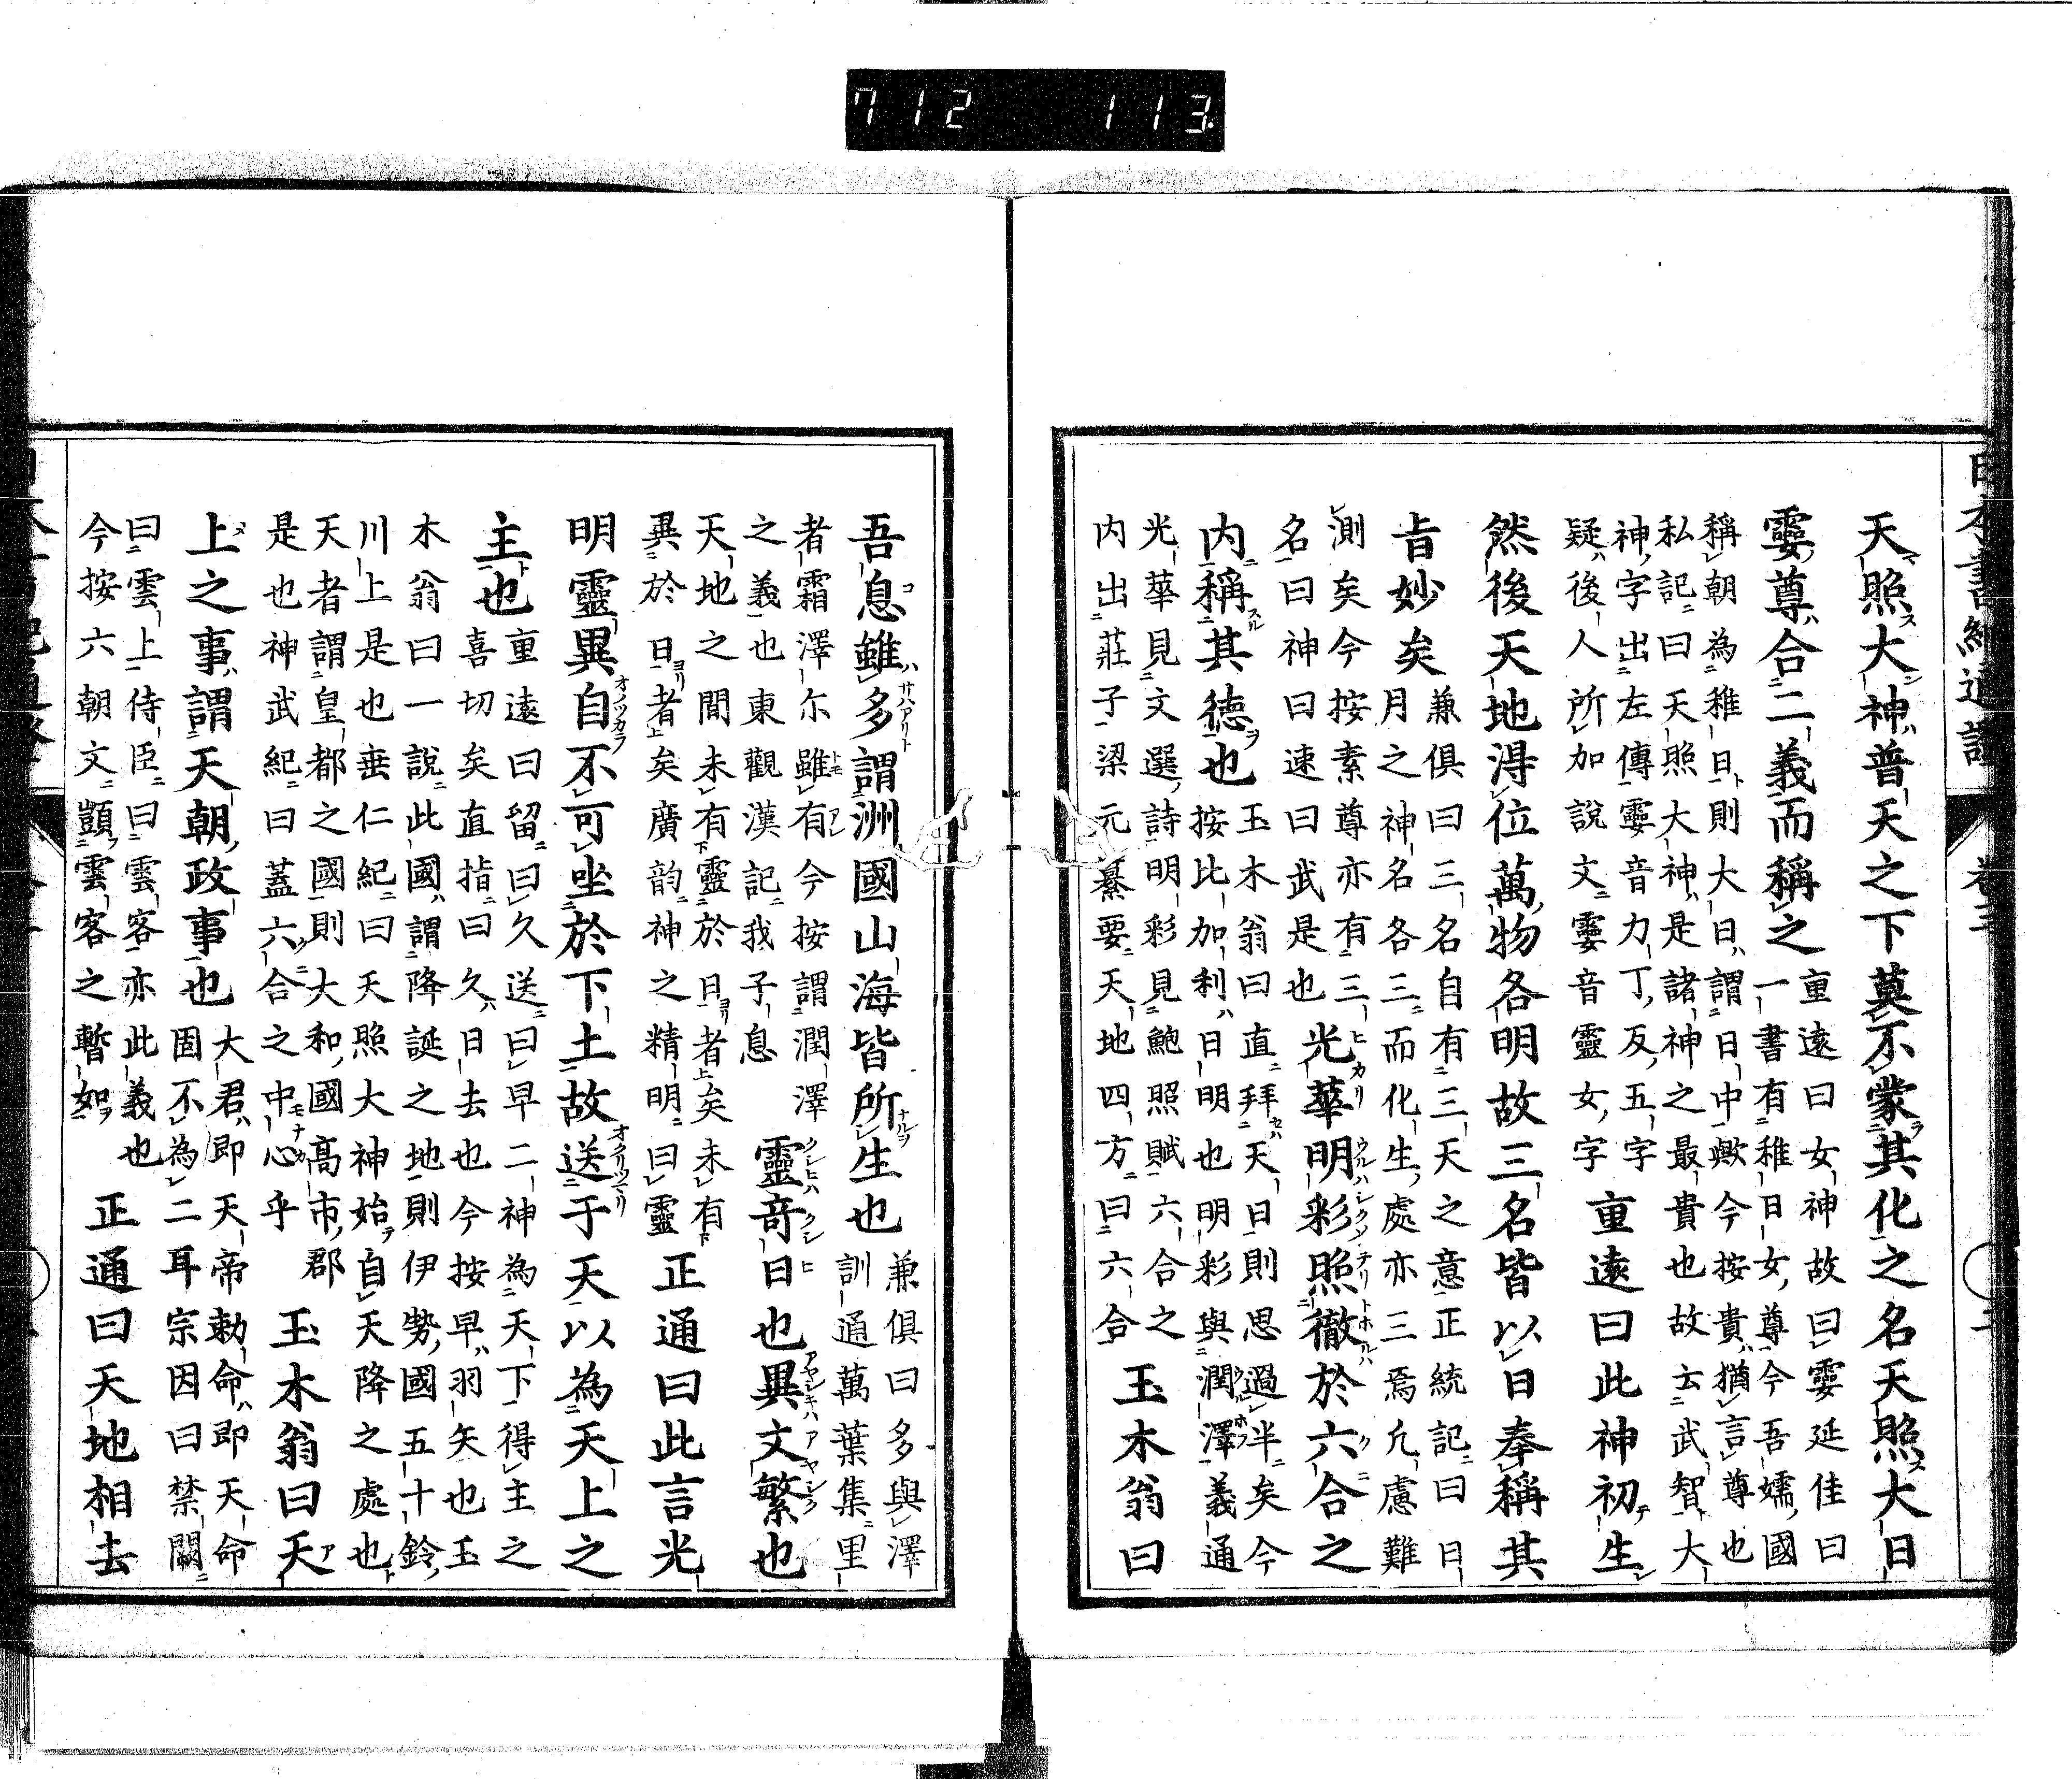 712 113.
日本書紀通證 卷三
天照大神普天之下莫不蒙其化之名天照大日
孁尊合二義而稱之
重遠曰女神故曰孁延佳曰
一書有稚日女尊今吾嬬國
稱朝為稚日則大日謂日中歟今按貴猶言尊也
私記曰天照大神是諸神之最貴也故云武智大
神字出左傳孁音力丁反五字
疑後人所加說文孁音靈女字
重遠曰此神初生
然後天地淂位萬物各明故三名皆以日奉稱其
旨妙矣
兼俱曰三名自有三天之意正統記曰日
月之神名各三而化生處亦三焉凢慮難
測矣今按素尊亦有三
名曰神曰速曰武是也
光華明彩照徹於六合之
内稱其徳也
玉木翁曰直拜天日則思過半矣今
按比加利日明也明彩與潤澤義通
光華見文選詩明彩見鮑照賦六合之
内出莊子梁元纂要天地四方曰六合
玉木翁曰
吾息雖多謂洲國山海皆所生也
兼俱曰多與澤
訓通萬葉集里
者霜澤尓雖有今按謂潤澤
之義也東觀漢記我子息
靈竒曰也異文繁也
天地之間未有靈於日者矣未有
異於日者矣廣韵神之精明曰靈
正通曰此言光
明靈異自不可坐於下土故送于天以為天上之
主也
重遠曰留曰久送曰早二神為天下得主之
喜切矣直指曰久日去也今按早羽矢也玉
木翁曰一說此國謂降誕之地則伊勢國五十鈴
川上是也垂仁紀曰天照大神始自天降之處也
天者謂皇都之國則大和國高市郡
是也神武紀曰蓋六合之中心乎
玉木翁曰天
上之事謂天朝政事也
大君即天帝勅命即天命
固不為二耳宗因曰禁闕
曰雲上侍臣曰雲客亦此義也
今按六朝文顗雲客之暫如
正通曰天地相去